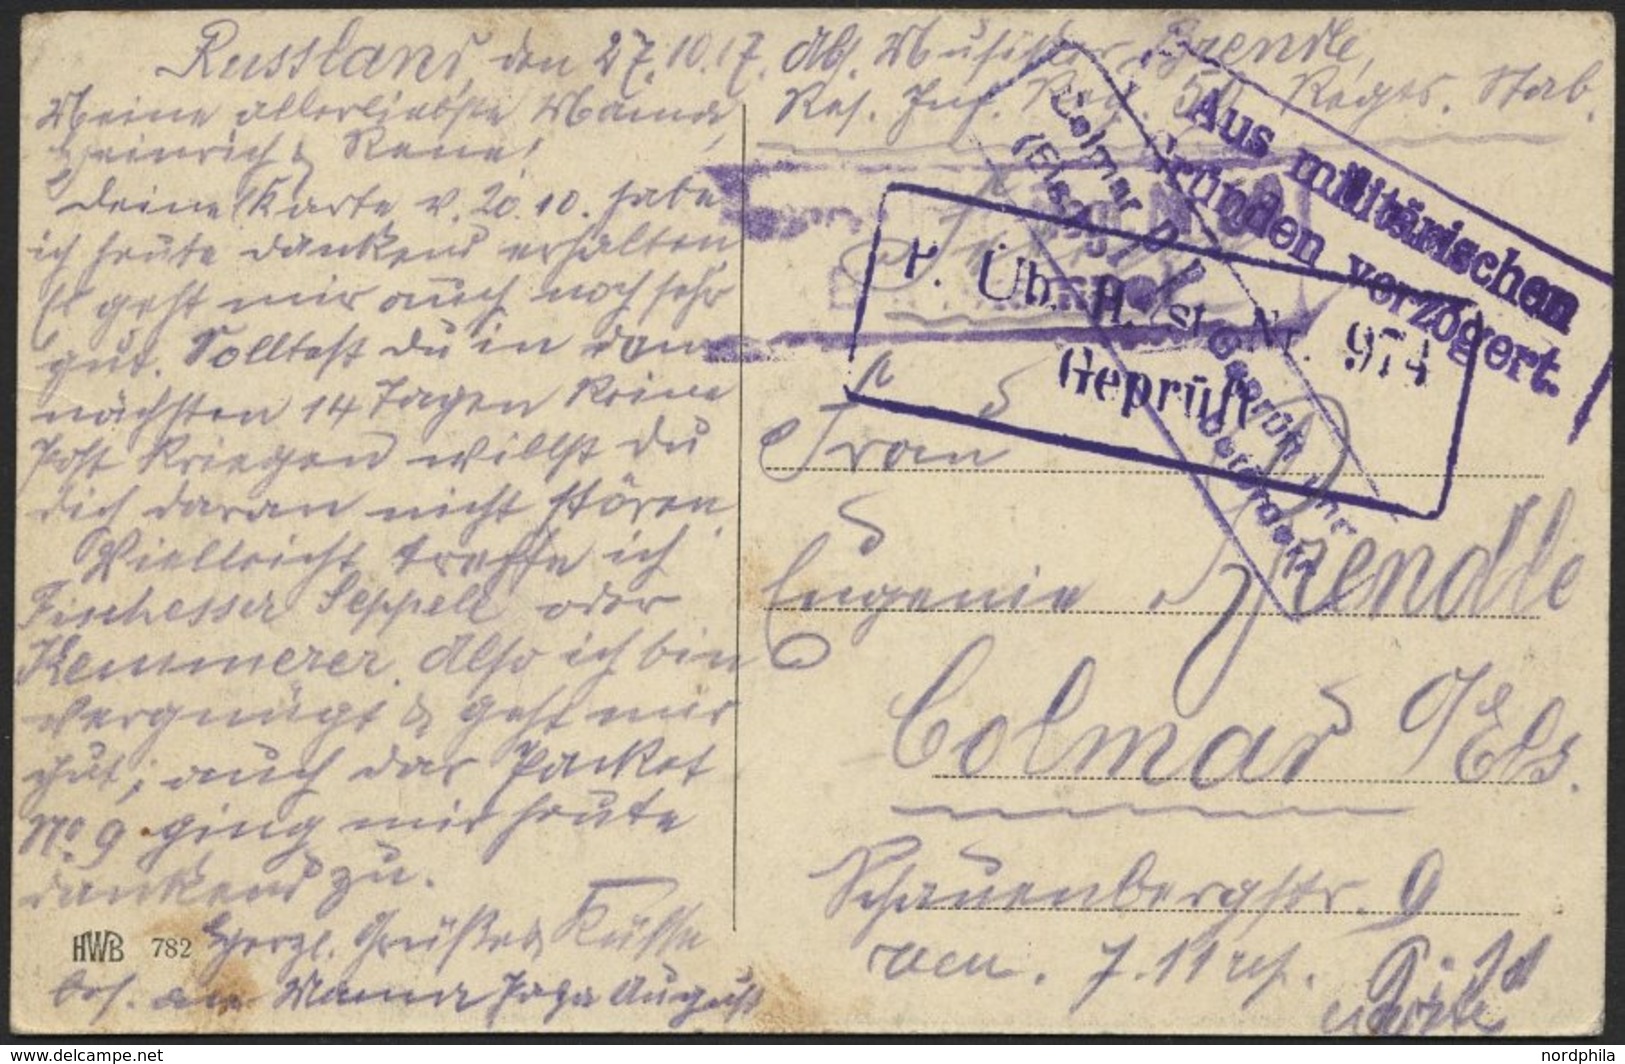 Russland, den 27.10.17.
Meine allerliebste Mama,
Heinrich & Rene!
Deine Karte v. 20.10. habe
ich heute dankend erhalten
Es geht mir auch noch sehr
gut. Solltest du in den
nächsten 14 Tagen keine
Post kriegen willst du
dich daran nicht stören.
Vielleicht treffe ich
Fischesser Seppele oder
Kemmerer. Also ich bin
vergnügt & geht mir
gut; auch das Packet
No. 9 ging mir heute
dankend zu.
Herzl. Grüße & Küsse
bes. an Mama Papa August
HWB 782
Abs. Musketier Brendle,
Res. Inf. Reg. 50 Regts. Stab.
Aus militärischen
Gründen verzögert.
P. Üb. St. Nr. 974
Geprüft
Colmar
Geprüft und
befördert
Frau
Eugenie Brendle
Colmar i/Els.
Schauenbergstr. 9